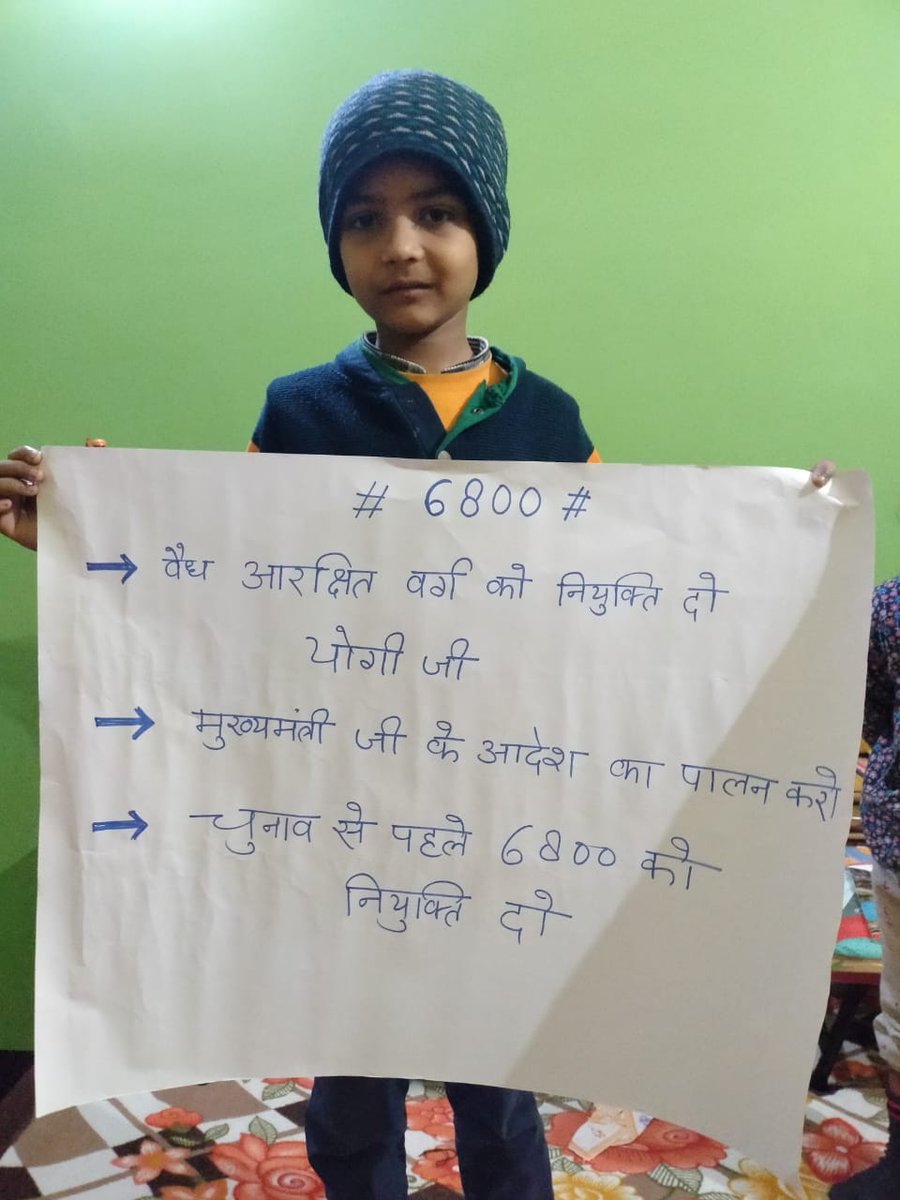 # 6800 #
→ वैध आरक्षित वर्ग को नियुक्ति दो
योगी जी
→ मुख्यमंत्री जी के आदेश का पालन करो
→ चुनाव से पहले 6800 को
नियुक्ति दो